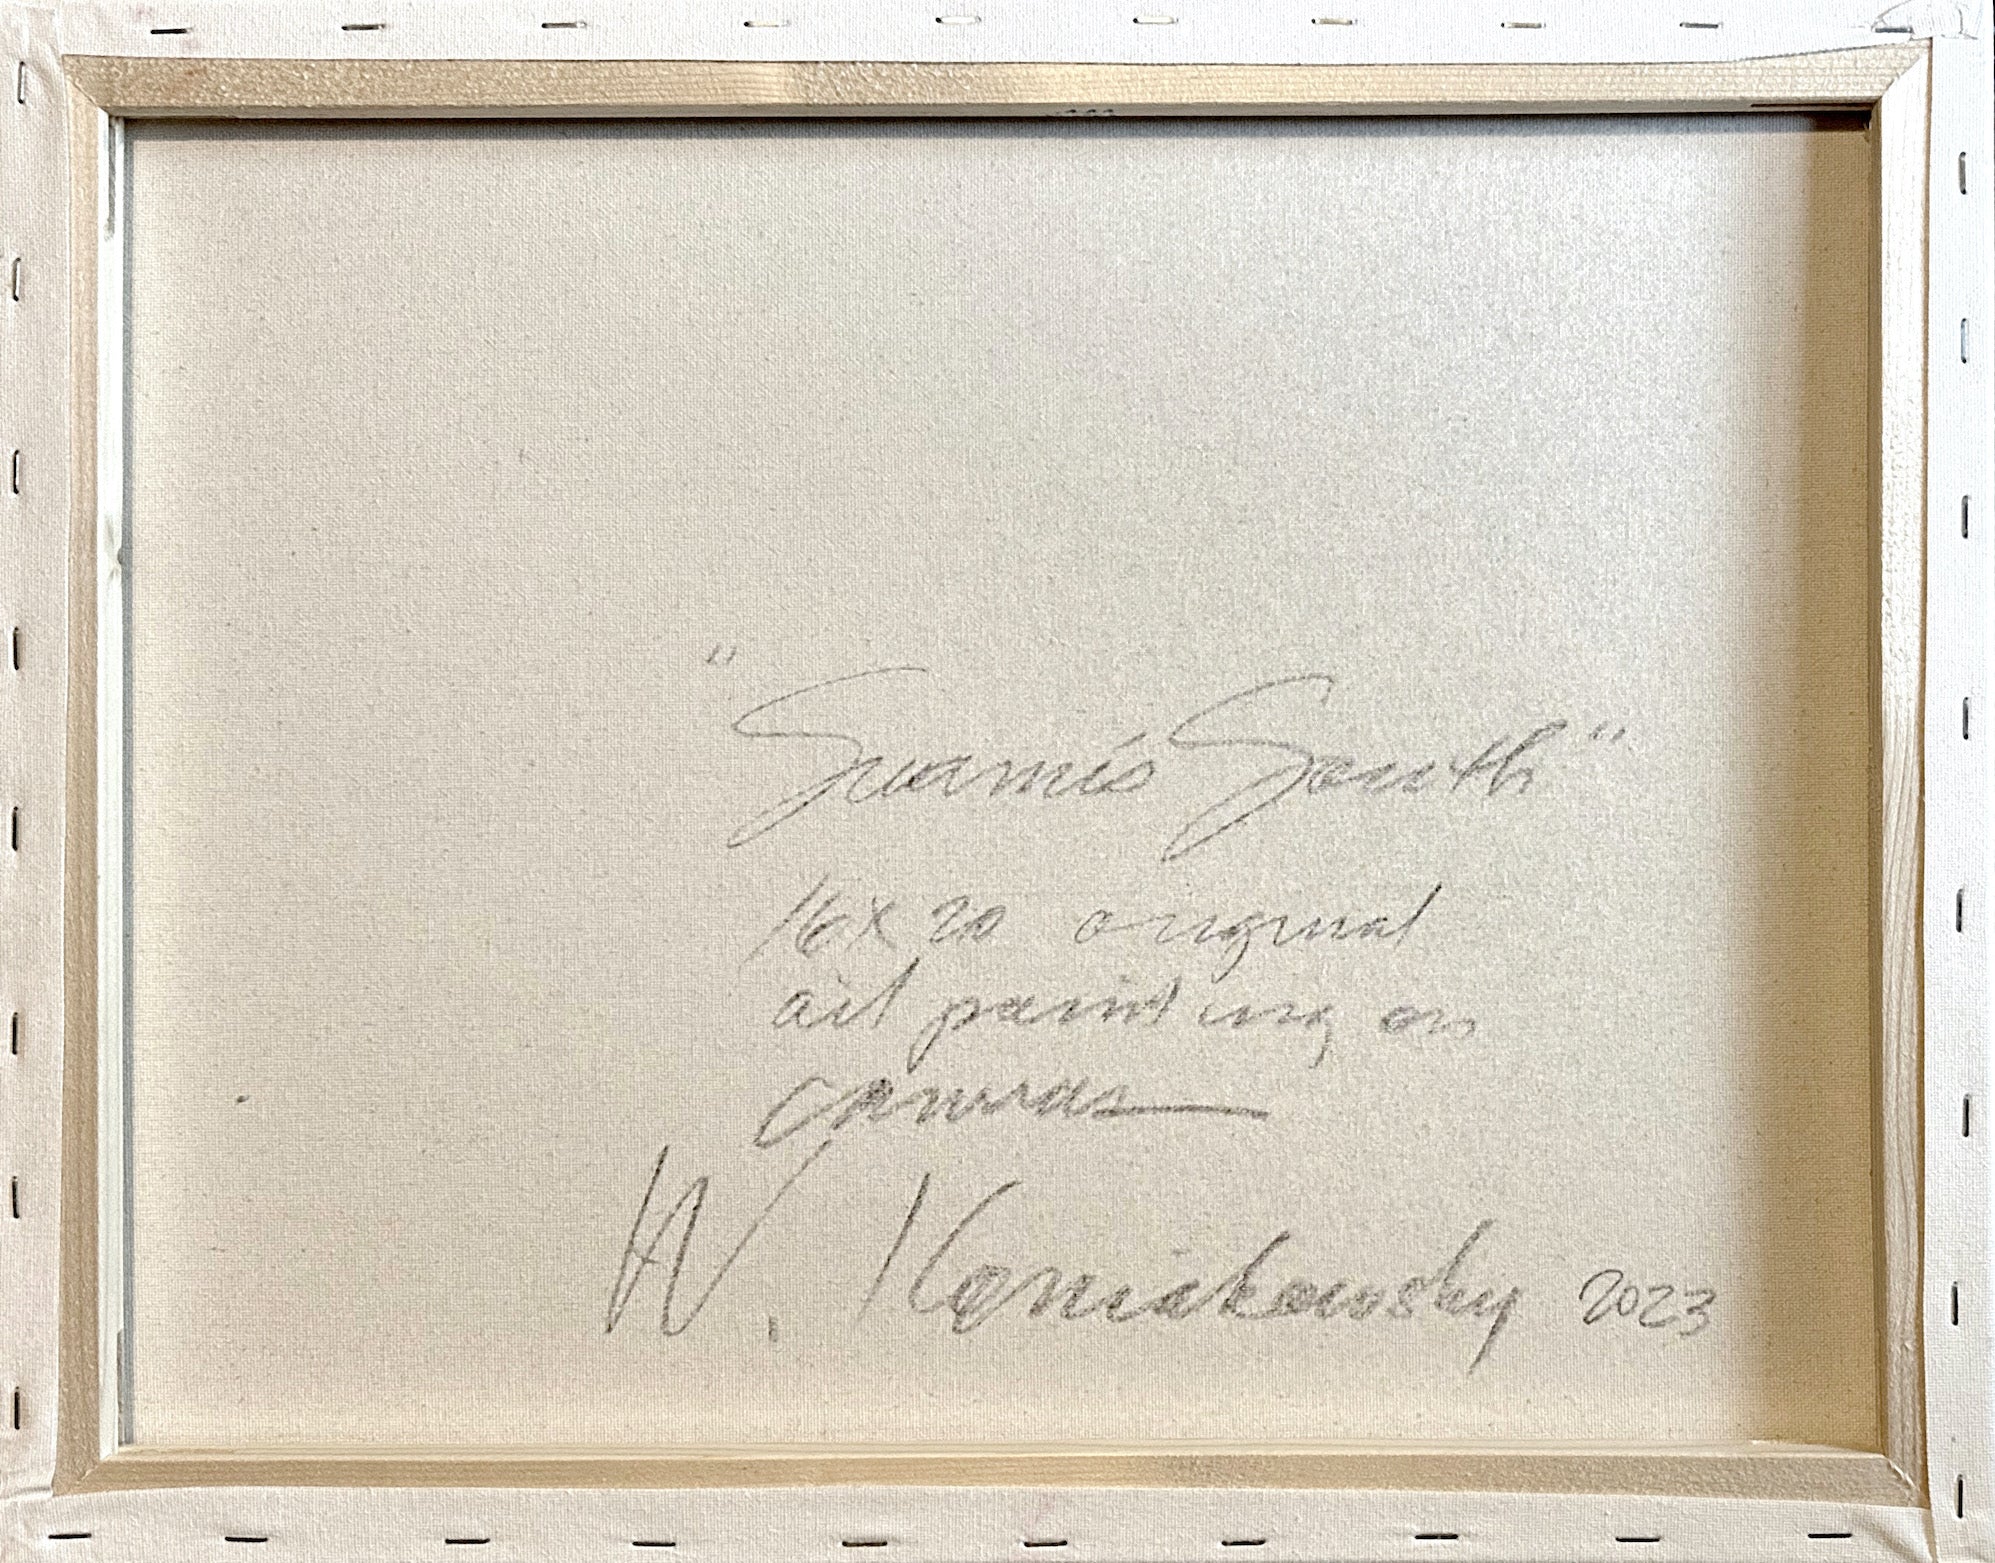 "Suamis South"
16x20 original
oil painting on
canvas
W. Koniakowsky 2023